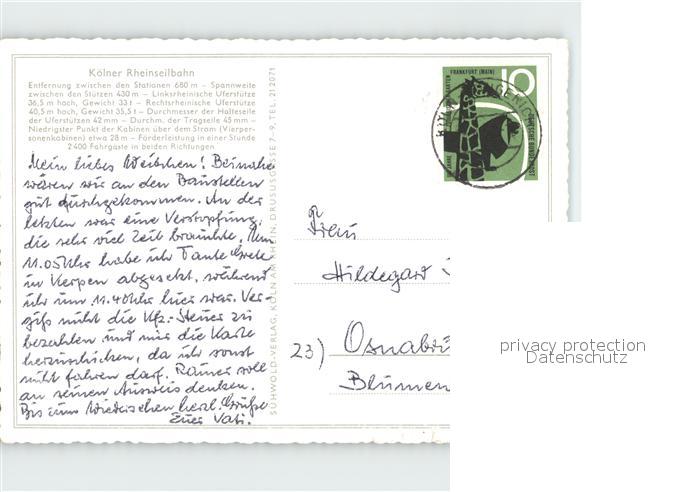 Kölner Rheinseilbahn
Entfernung zwischen den Stationen 680 m – Spannweite
zwischen den Stützen 430 m – Linksrheinische Uferstütze
36,5 m hoch, Gewicht 33 t – Rechtsrheinische Uferstütze
40,5 m hoch, Gewicht 35,5 t – Durchmesser der Halteseile
der Uferstützen 42 mm – Durchm. der Tragseile 45 mm –
Niedrigster Punkt der Kabinen über dem Strom (Vierper-
sonenkabinen) etwa 28 m – Förderleistung in einer Stunde
2400 Fahrgäste in beiden Richtungen
Mein liebes Weibchen! Beinahe
wären wir an den Baustellen
gut durchgekommen. An der
letzten war eine Verstopfung,
die sehr viel Zeit brauchte. Um
11.05 Uhr habe ich Tante Grete
in Kerpen abgesetzt, während
ich um 11.40 Uhr hier war. Ver-
giß nicht die Kfz.-Steuer zu
bezahlen und mir die Karte
herzuschicken, da ich sonst
nicht fahren darf. Rainer soll
an seinen Ausweis denken.
Bis zum Wiedersehen herzl. Grüße
Euer Vati.
SÜHWOLD-VERLAG, KÖLN AM RHEIN, DRUSUSGASSE 7-9, TEL. 21 2071
FRANKFURT (MAIN)
10
DEUTSCHE BUNDESPOST
Frau
Hildegard
23) Osnabrü
Blumen
privacy protection
Datenschutz